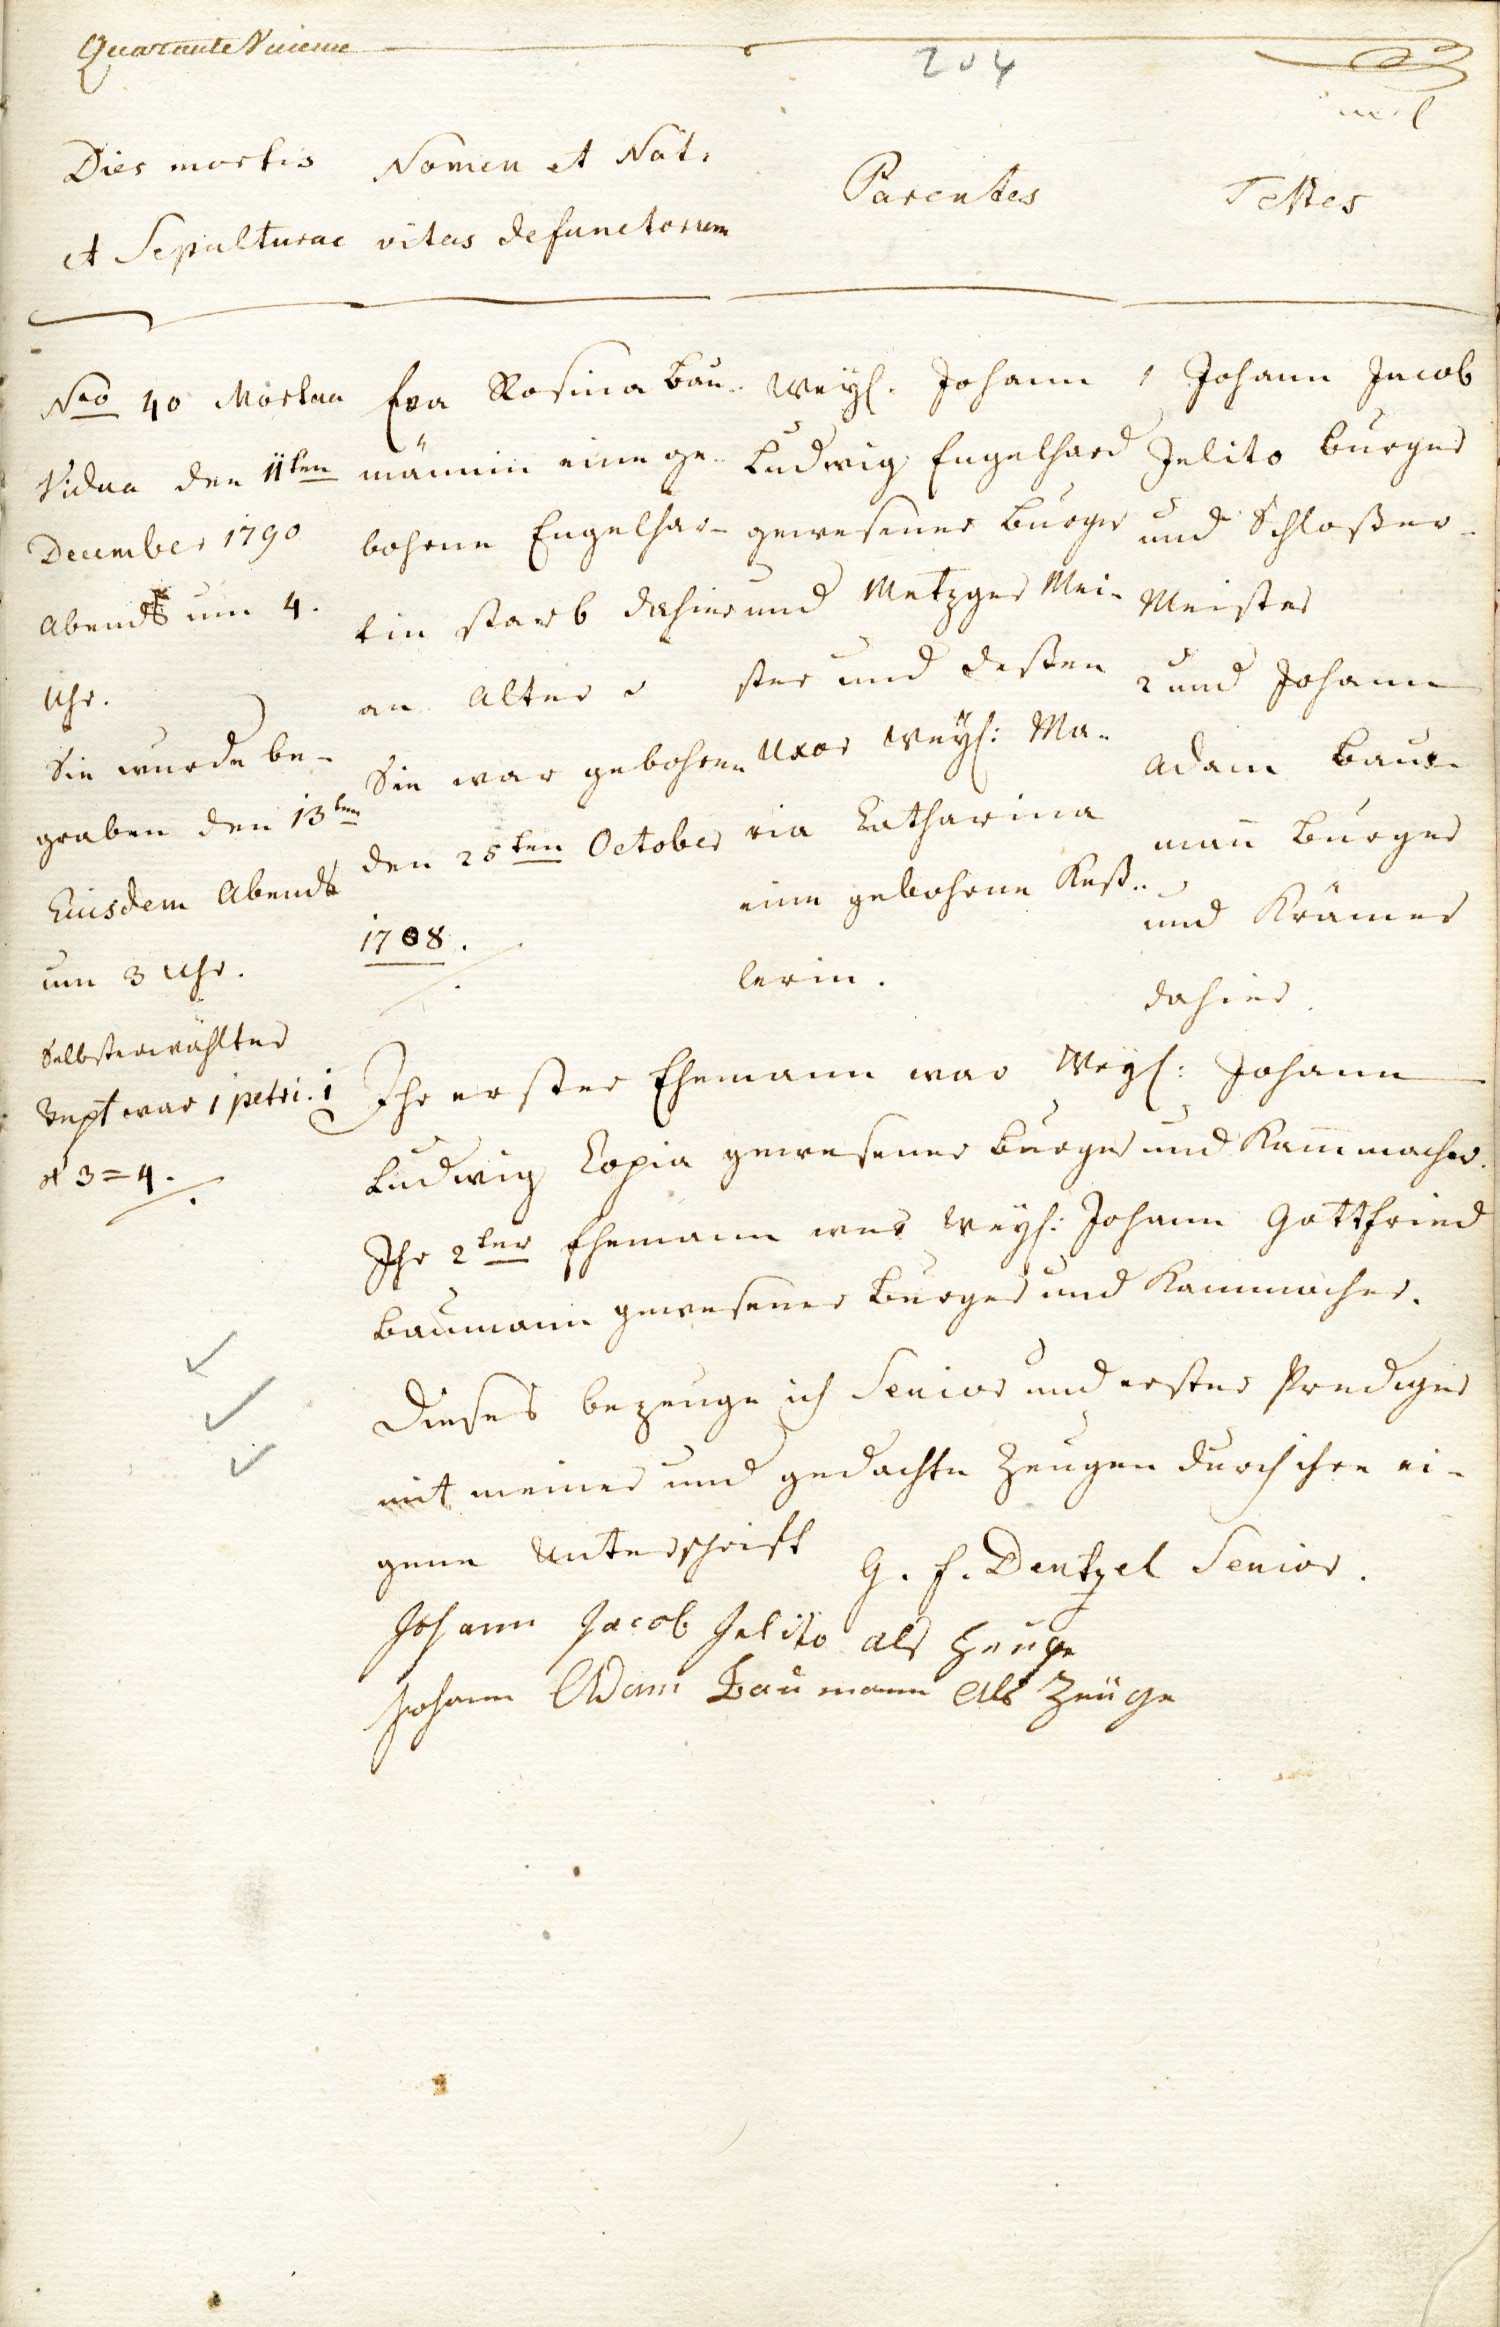 Quarante Nuieme
204
Dies mortis
et Sepulturae
Nomen et Nat.
vitae defunctorum
Parentes
Testes
Nro 40 Mortua
Vidua den 11ten
December 1790
Abends um 4.
Uhr.
Sie wurde be-
graben den 13ten
Eiusdem Abends
um 3 Uhr.
Selbsterwählter
Text war 1 petri. 1
℣ 3=4.
Eva Rosina Bau-
männin eine ge-
bohrne Engelhar-
tin starb dahier
an Alter
Sie war gebohren
den 25ten October
1708.
Weyl. Johann
Ludwig Engelhard
gewesener Burger
und Metzger Mei-
ster und deßen
Uxor Weyl: Ma-
ria Catharina
eine gebohrne Keß-
lerin.
1 Johann Jacob
Jelito burger
und Schloßer-
Meister
2 und Johann
Adam Bau-
man̄ Burger
und Krämer
dahier.
Ihr erster Ehemann war Weyl: Johann
Ludwig Copia gewesener Burger und Kam̄macher.
Ihr 2ter Ehemann war Weyl: Johann Gottfried
Baumann gewesener Burger und Kammacher.
Dieses bezeuge ich Senior und erster Prediger
mit meiner und gedachte Zeugen durch ihre ei-
gene Unterschrift G. F. Dentzel Senior.
Johann Jacob Jelito als Zeuge
Johann Adam Baumann als Zeüge